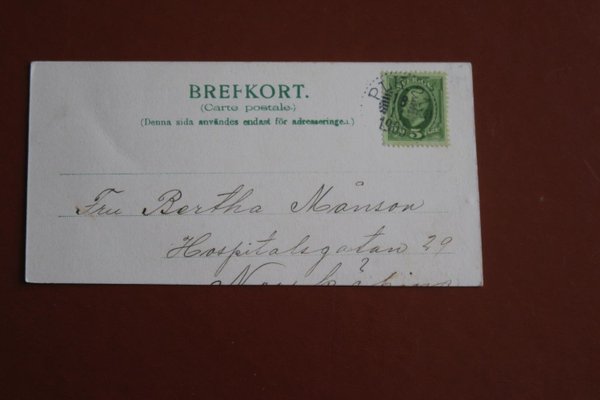 BREFKORT.
(Carte postale.)
(Denna sida användes endast för adresseringen.)
SVERIGE
5
Fru Bertha Månson
Hospitalsgatan 29
Norrköping